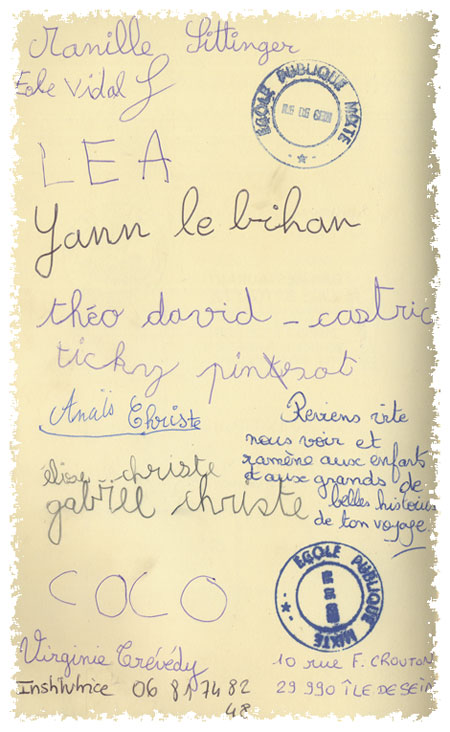 Manille Sittinger
Eole Vidal
ÉCOLE PUBLIQUE MIXTE
ILE DE SEIN
LEA
Yann le bihan
théo david _ castric
ticky
Anaïs Christe
Reviens vite
nous voir et
ramène aux enfants
et aux grands de
belles histoires
de ton voyage.
élise christe
gabriel christe
ÉCOLE PUBLIQUE MIXTE
COCO
Virginie Trévédy
Institutrice 06 81 74 82
48
10 rue F. CROUTON
29 990 ÎLE DE SEIN